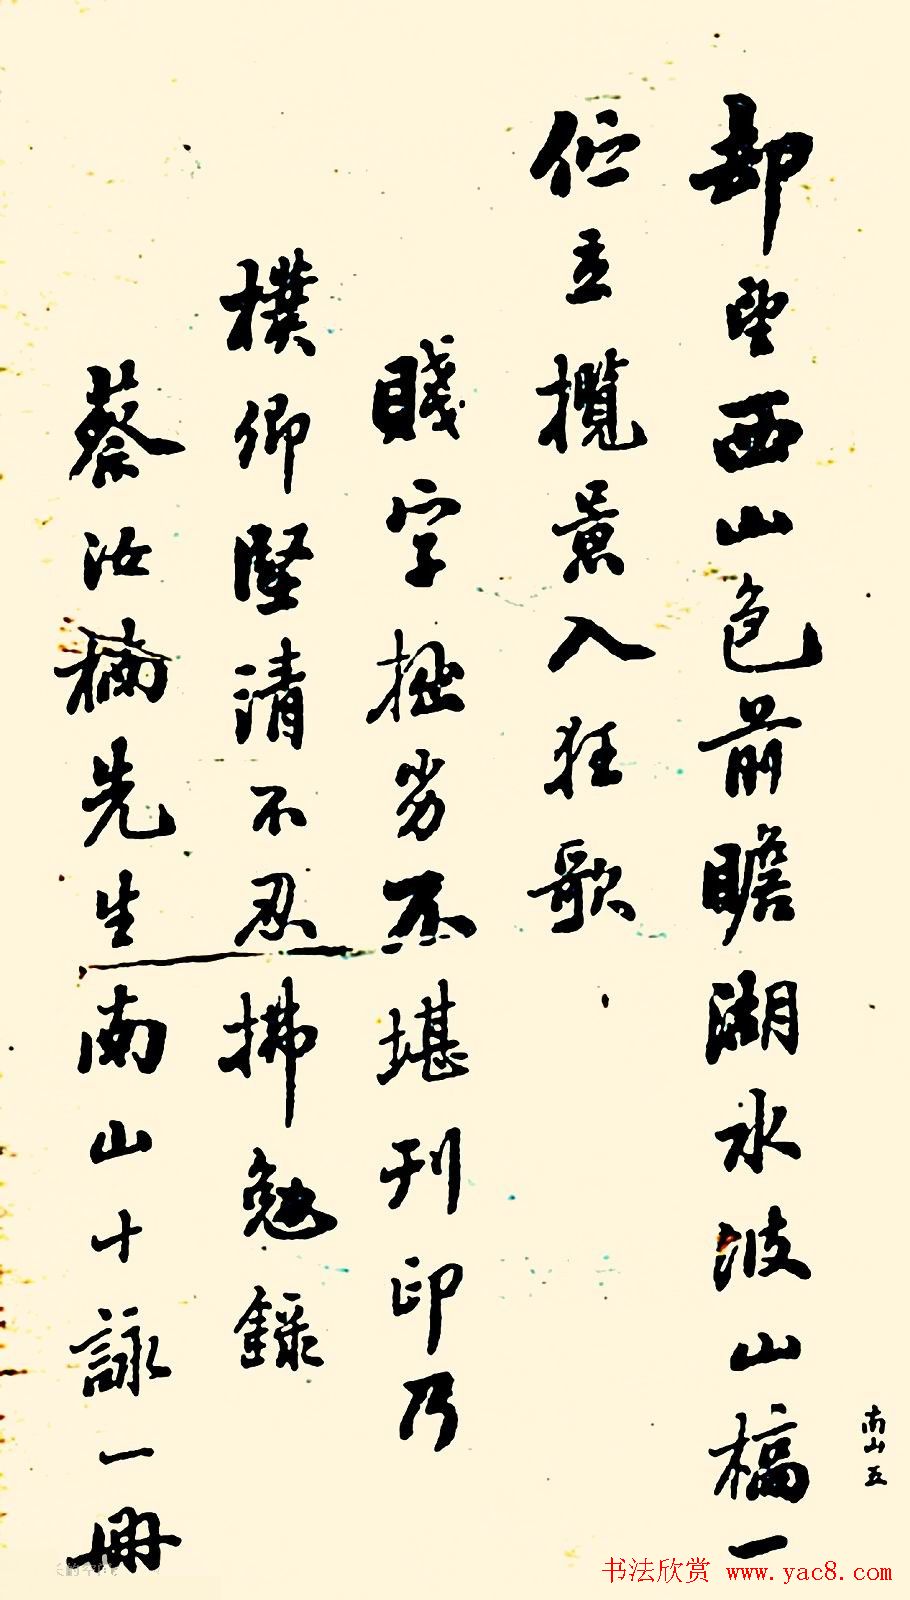 却望西山色前瞻湖水波山橋一
佇立攬景入狂歌
賤字拙劣不堪刊印乃
樸卿堅請不忍拂勉錄
蔡汝楠先生南山十詠一冊
南山五
书法欣赏 www.yac8.com